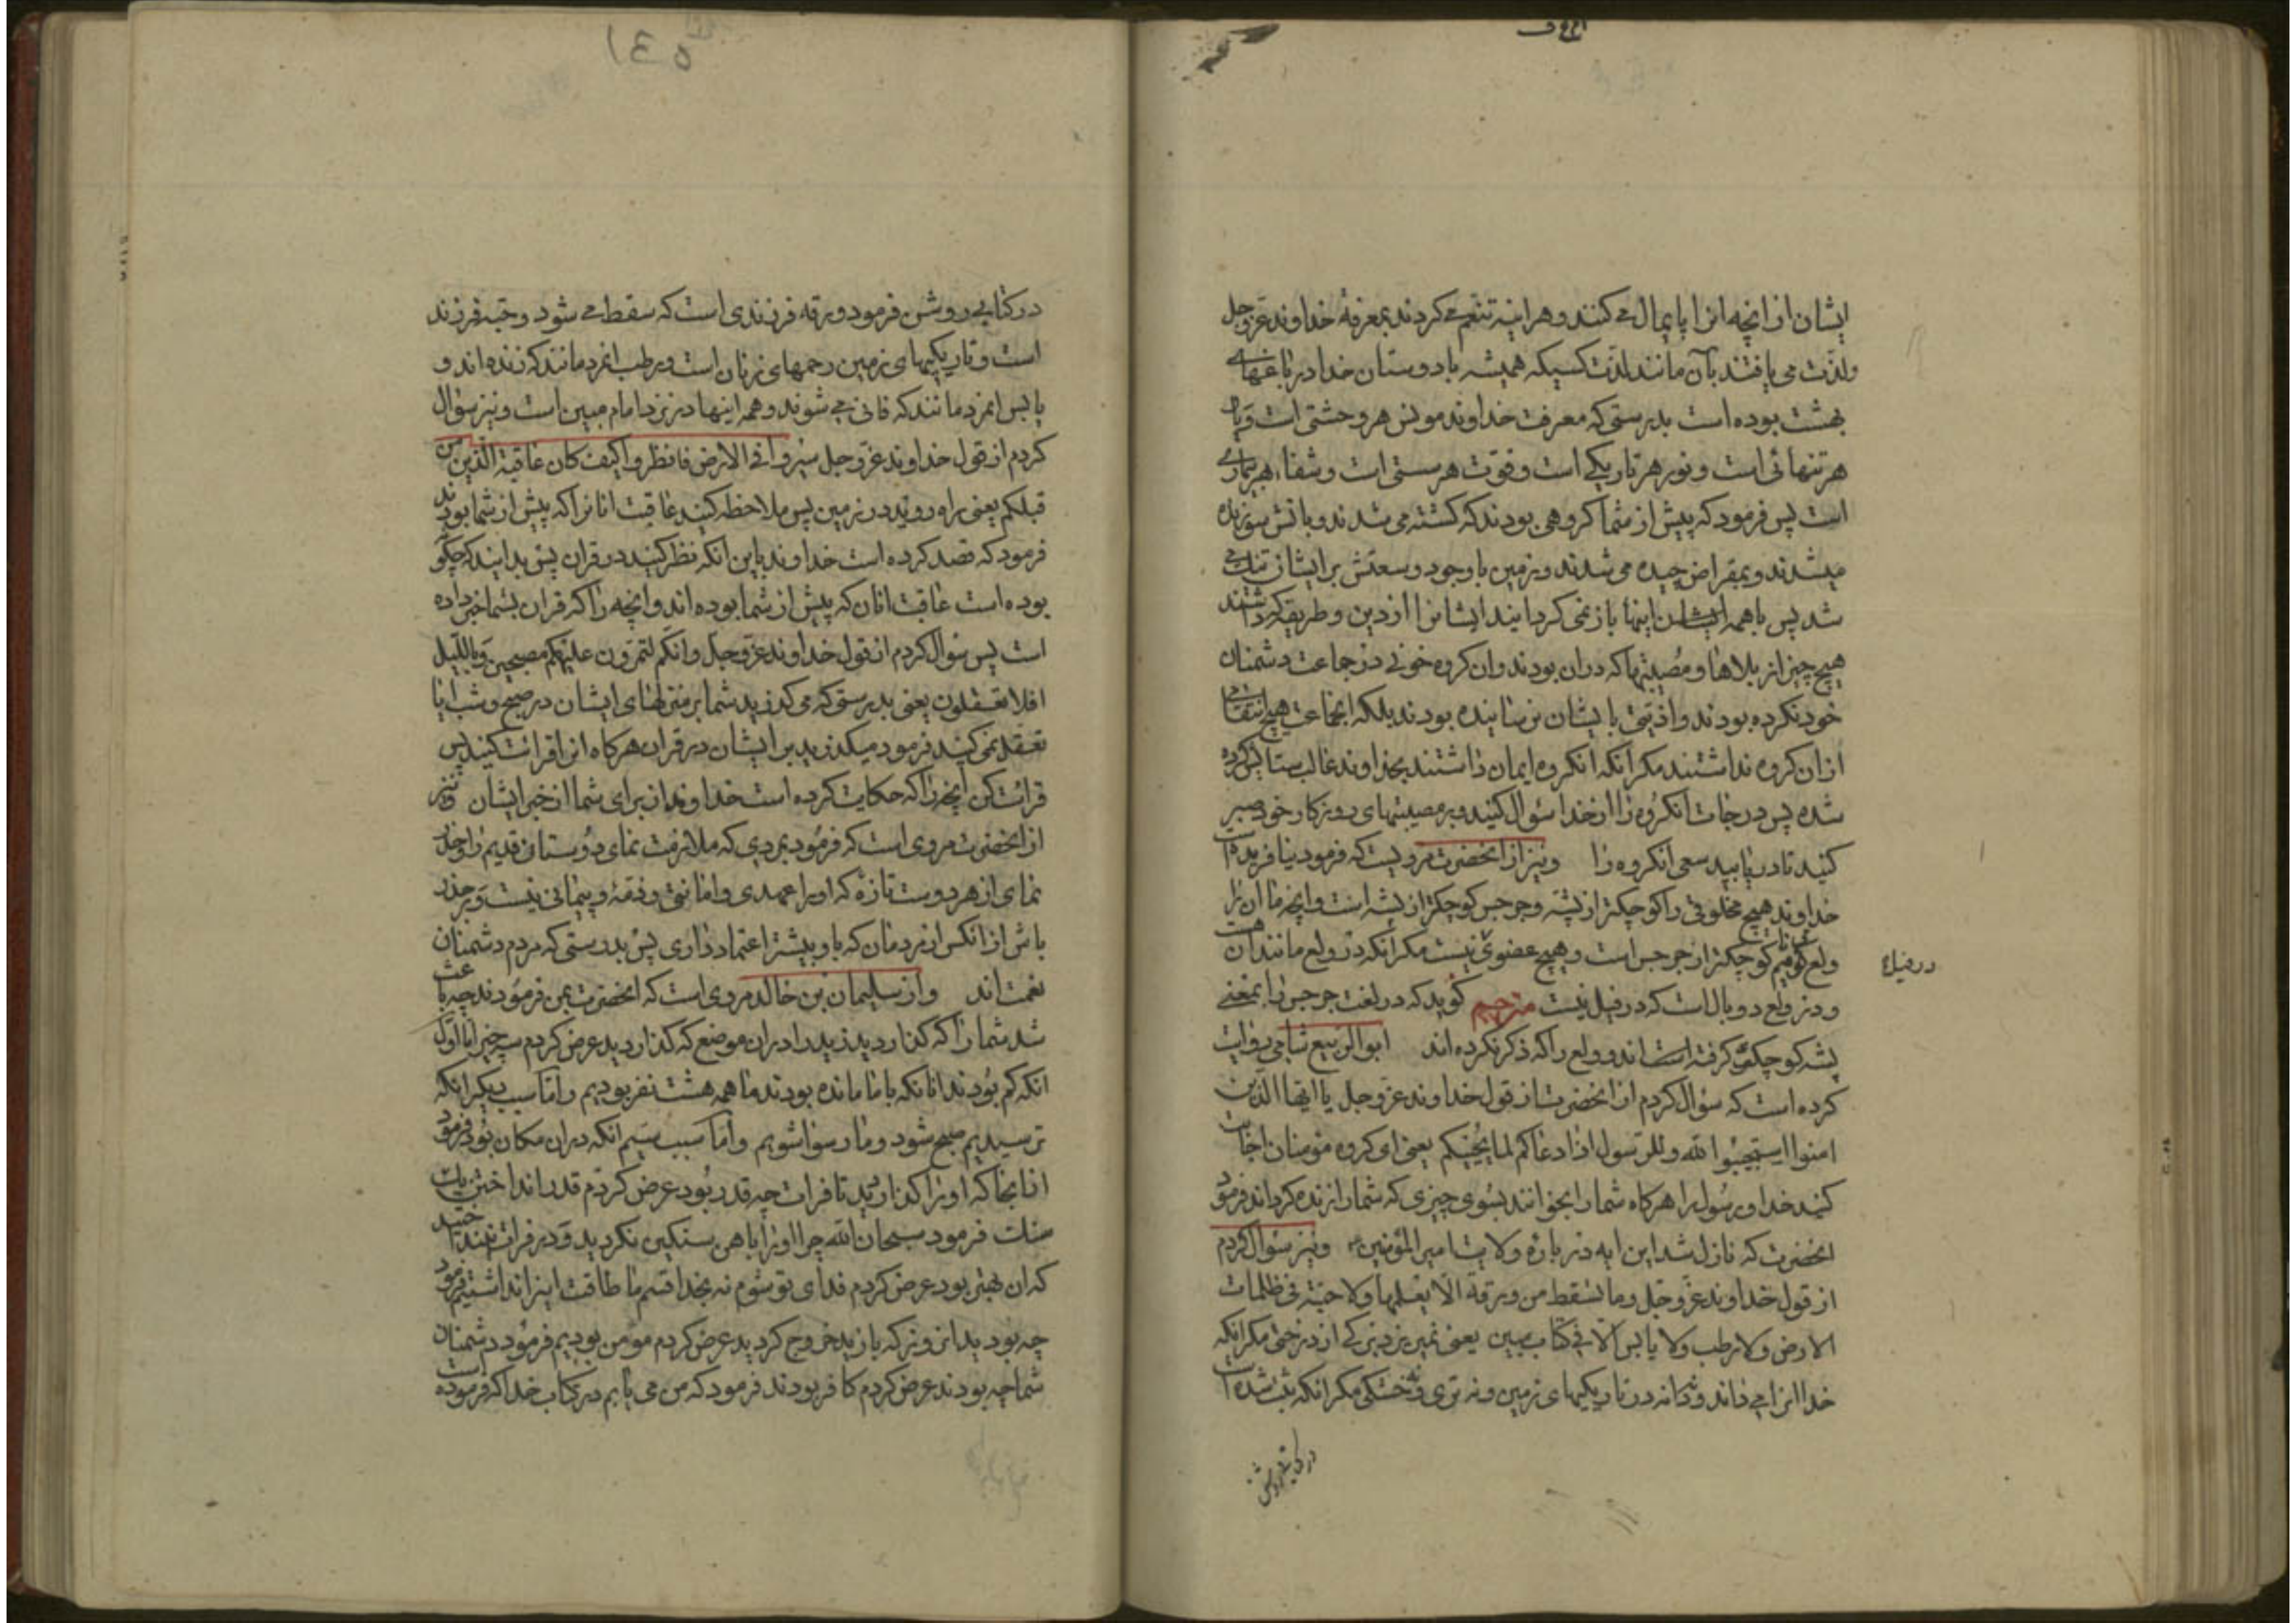 ایشان از انچه انرا پایمال می کنند و هر اینه تنعم می کردند بمعرفة خداوند عزوجل
ولذت می یافتند بآن مانند لذت کسیکه همیشه با دوستان خدا در باغهای
بهشت بوده است بدرستی که معرفت خداوند مونس هر وحشتی است و یار
هر تنهائی است و نور هر تاریکی است و قوت هر سستی است و شفاء هر بیماری
است پس فرمود که پیش از شما کروهی بودند که کشته می شدند و باتش سوزانده
میشدند و بمقراض چیده می شدند و زمین با وجود وسعتش بر ایشان تنک می
شد پس با همه اینها باز نمی کردانید ایشانرا از دین و طریقه که داشتند
هیچ چیز از بلاها و مصیبتها که دران بودند و ان کروه خونی در جماعت دشمنان
خود نکرده بودند و اذیتی بایشان نرسانیده بودند بلکه انجماعت هیچ انتقامی
ازان کروه نداشتند مکر انکه انکروه ایمان داشتند بخداوند غالب ستایش کرده
شده پس درجات انکروه را از خدا سؤال کنید و بر مصیبتهای روزکار خود صبر
کنید تا دریابید سعی انکروه را ونیز از انحضرت مرویست که فرمود نیافریده است
خداوند هیچ مخلوقی را کوچکتر از پشه و جرجس کوچکتر از پشه است و انچه ما ان را
ولع می نامیم کوچکتر از جرجس است و هیچ عضوی نیست مکر آنکه در ولع مانند آن هست
در فیل
و در ولع دو بال است که در فیل نیست مترجم کوید که در لغت جرجس را بمعنی
پشه کوچک گرفته اند و ولع را که ذکر نکرده اند ابوالربیع شامی روایت
کرده است که سؤال کردم از انحضرت از قول خداوند عزوجل یا ایها الذین
امنوا استجیبوا لله وللرسول اذا دعاکم لما یحییکم یعنی ای کروه مؤمنان اجابت
کنید خدا و رسول را هرکاه شما را بخوانند بسوی چیزی که شما را زنده کرداند فرمود
انحضرت که نازل شد این ایه در باره ولایت امیرالمؤمنین ونیز سؤال کردم
از قول خداوند عزوجل وما تسقط من ورقة الا یعلمها ولا حبة فی ظلمات
الارض ولا رطب ولا یابس الا فی کتاب مبین یعنی نمی ریزد برکی از درختی مکر انکه
خدا انرا می داند و نه دانه در تاریکیهای زمین و نه تری و نه خشکی مکر انکه ثبت شده است
در کتابی روشن
در کتابی روشن فرمود ورقه فرزندی است که سقط می شود و حبه فرزند
است و تاریکیهای زمین رحمهای زنان است و رطب انمردمانند که زنده اند و
یابس انمردمانند که فانی می شوند و همه اینها در نزد امام مبین است ونیز سؤال
کردم از قول خداوند عزوجل سیروا فی الارض فانظروا کیف کان عاقبة الذین من
قبلکم یعنی راه روید در زمین پس ملاحظه کنید عاقبت انانرا که پیش از شما بودند
فرمود که قصد کرده است خداوند باین انکه نظر کنید در قران پس بدانید که چکونه
بوده است عاقبت انان که پیش از شما بوده اند و انچه را که قران بشما خبر داده
است پس سؤال کردم از قول خداوند عزوجل وانکم لتمرون علیهم مصبحین وباللیل
افلا تعقلون یعنی بدرستی که می کذرید شما بر منزلهای ایشان در صبح و شب ایا
تعقل نمی کنید فرمود میکذرید بر ایشان در قران هرکاه انرا قرائت کنید پس
قرائت کن انچه را که حکایت کرده است خداوند از برای شما از خبر ایشان ونیز
از انحضرت مروی است که فرمود بمردی که ملازمت نمای دوستان قدیم را و حذر
نمای از هر دوست تازه که او را عهدی و امانتی و ذمة و پیمانی نیست و بر حذر
باش از انکس از مردمان که باو بیشتر اعتماد داری پس بدرستی که مردم دشمنان
نعمت اند واز سلیمان بن خالد مروی است که انحضرت بمن فرمودند چه باعث
شد شما را که کذاردید زید را دران موضع که کذاردید عرض کردم سه چیز اما اول
انکه کم بودند انانکه با ما مانده بودند ما همه هشت نفر بودیم و اما سبب دیکر انکه
ترسیدیم صبح شود و ما رسوا شویم و اما سبب سیم انکه دران مکان بود فرمود
از انجا که او را کذاردید تا فرات چه قدر بود عرض کردم قدر انداختن یک
سنک فرمود سبحان الله چرا او را با هن سنکین نکردید و در فرات نینداختید
که ان بهتر بود عرض کردم فدای تو شوم نه بخدا قسم ما طاقت اینرا نداشتیم فرمود
چه بودید انروز که با زید خروج کردید عرض کردم مؤمن بودیم فرمود دشمنان
شما چه بودند عرض کردم کافر بودند فرمود که من می یابم در کتاب خدا که فرموده است